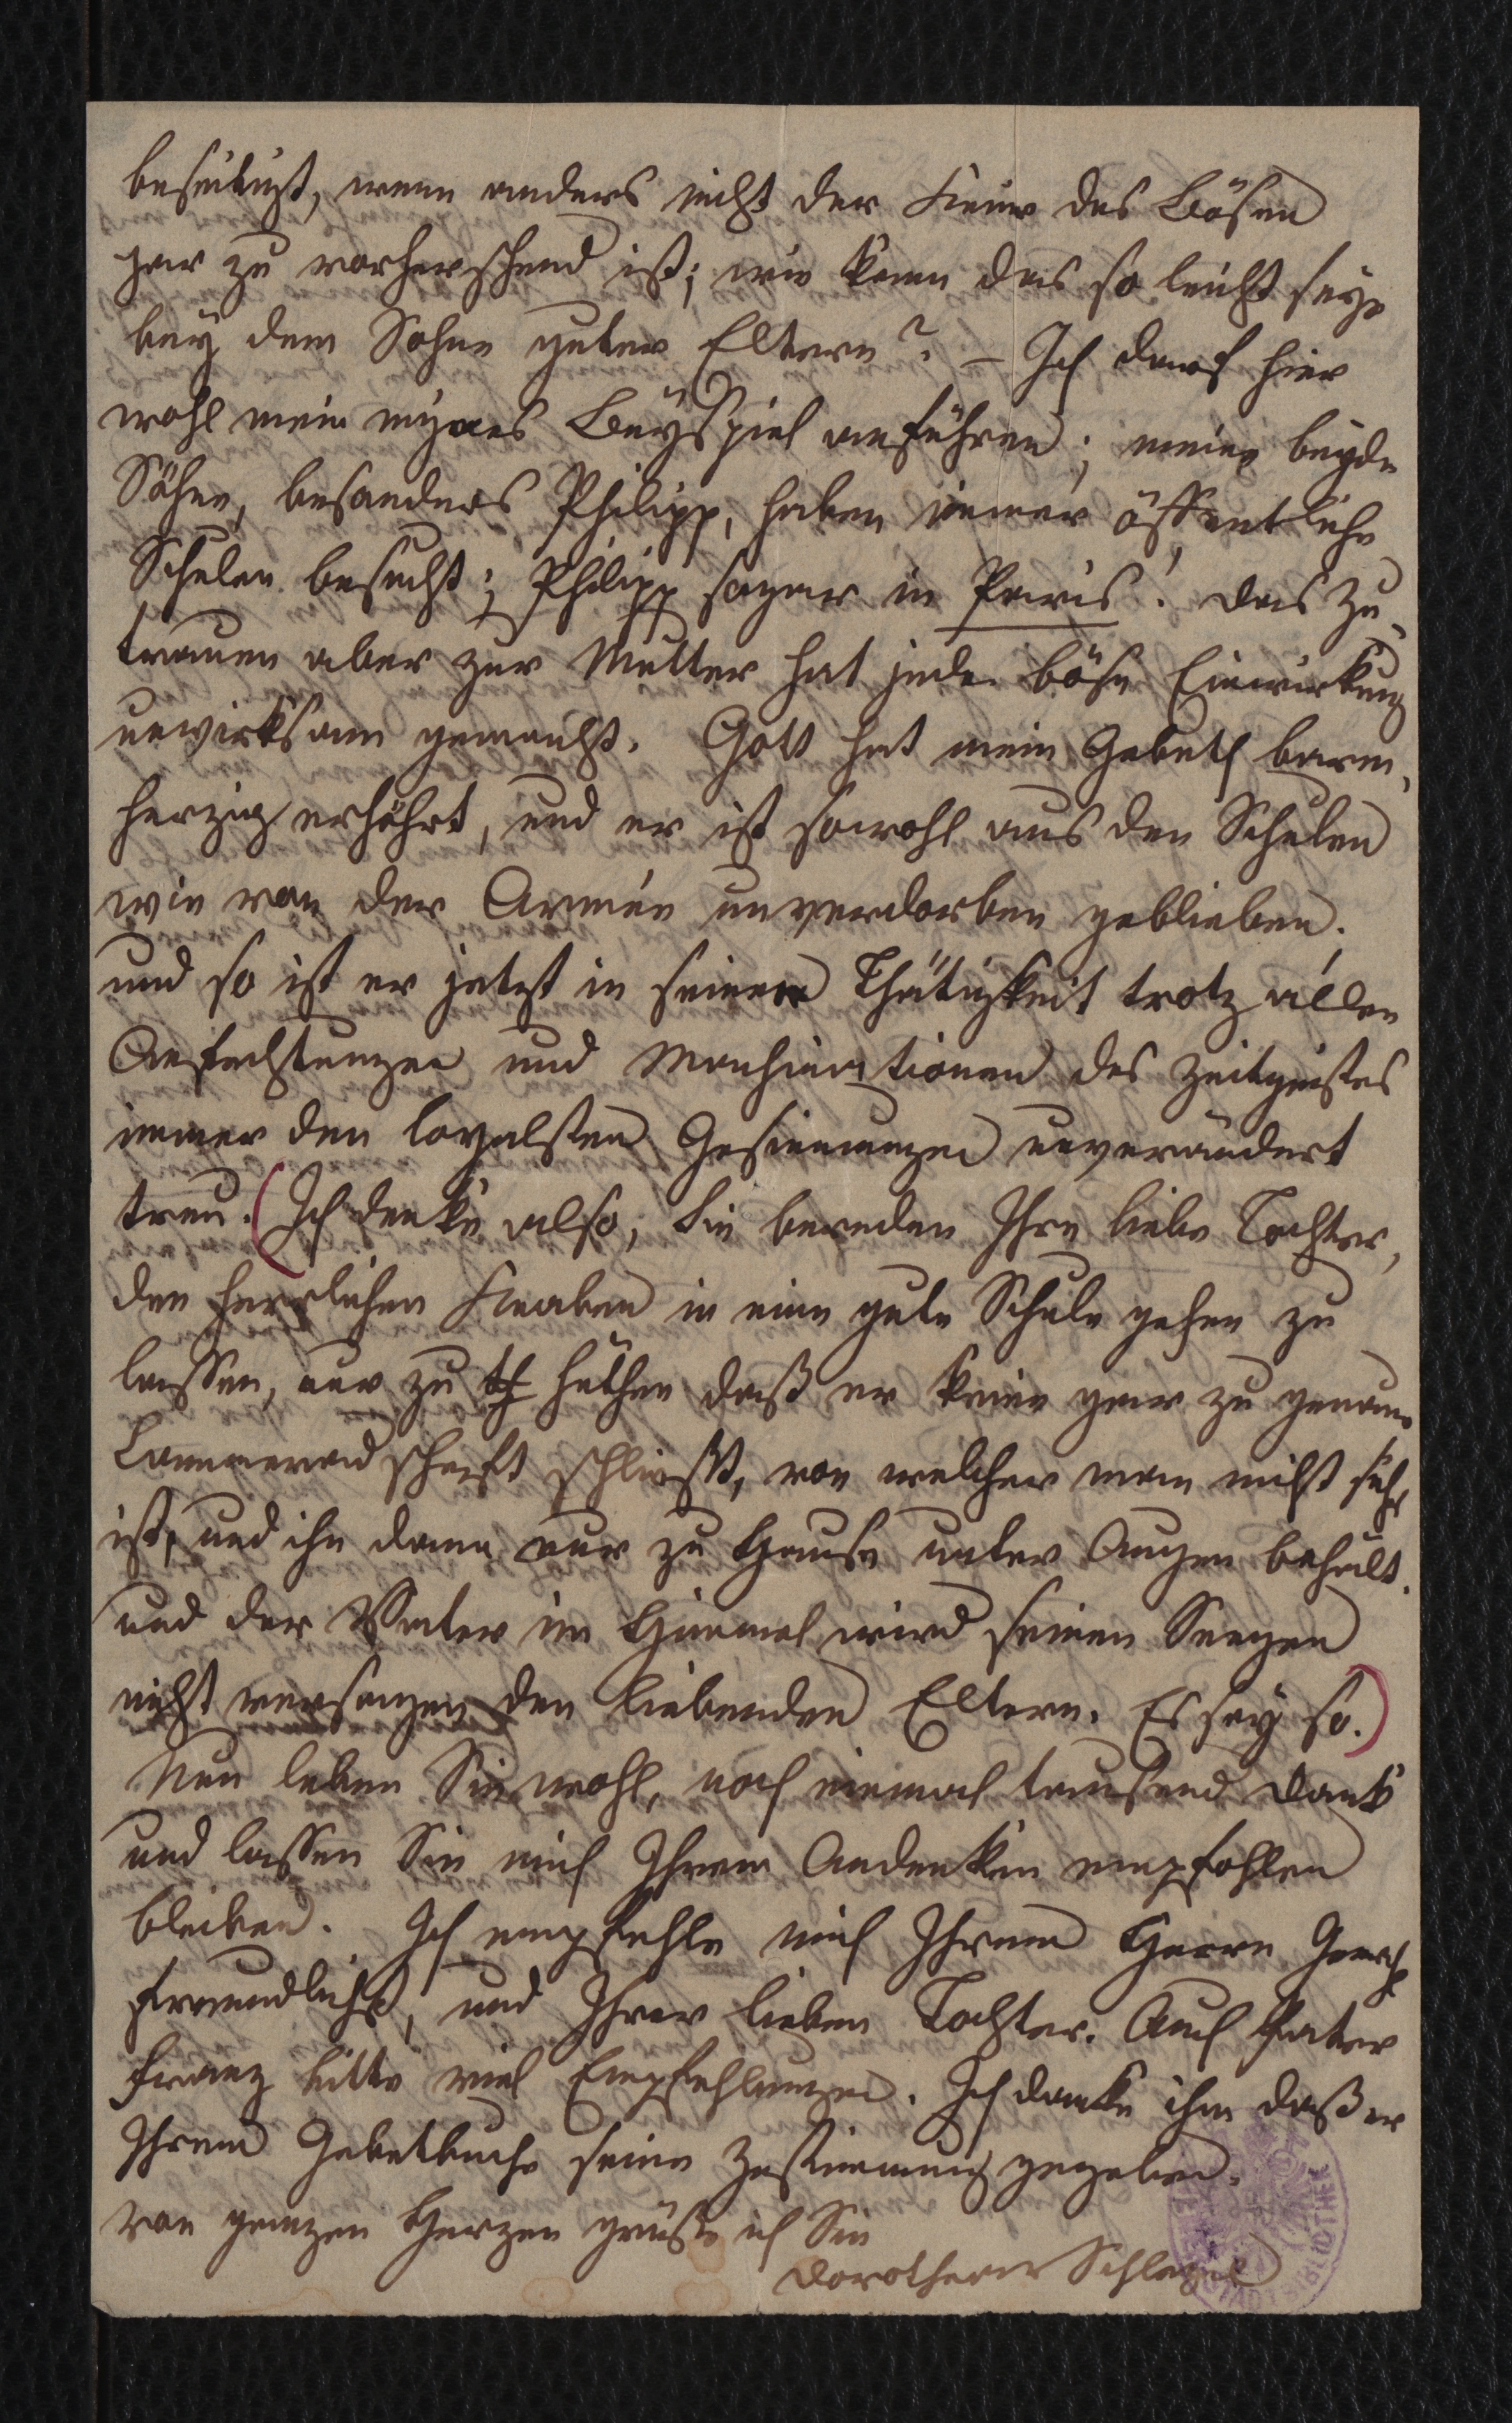 beseitigt, wenn anders nicht der Keim des Bösen
gar zu vorherrschend ist; wie kann das so leicht seyn
bey dem Sohne guter Eltern? – Ich darf hier
wohl mein eignes Beyspiel anführen; meine beyde
Söhne, besonders Philipp, haben immer öffentliche
Schulen besucht; Philipp sogar in Paris! das Zu-
trauen aber zur Mutter hat jede böse Einwirkung
unwirksam gemacht. Gott hat mein Gebeth barm-
herzig erhöhrt, und er ist sowohl aus den Schulen
wie von der Armée unverdorben geblieben.
und so ist er jetzt in seiner Thätigkeit trotz allen
Anfechtungen und Machinationen des Zeitgeistes
immer den loyalsten Gesinnungen unverändert
treu. (Ich denke also, Sie bereden Ihre liebe Tochter,
den herrlichen Knaben in eine gute Schule gehen zu
lassen, nur zu hüthen daß er keine gar zu genaue
Cammeradschaft schließt, von welcher man nicht
ist, und ihn dann nur zu Hause unter Augen behält.
und der Vater im Himmel wird seinen Seegen
nicht versagen den liebenden Eltern. Es sey so.)
Nun leben Sie wohl, noch einmal tausend Dank
und lassen Sie mich Ihrem Andenken empfohlen
bleiben. Ich empfehle mich Ihrem Herrn
freundlichst, und Ihrer lieben Tochter. Auch Pater
Franz bitte mich Empfehlungen. Ich danke ihm daß er
Ihrem Gebetbuche seine Zustimmung gegeben.
von ganzen Herzen grüße ich Sie
Dorothea Schlegel